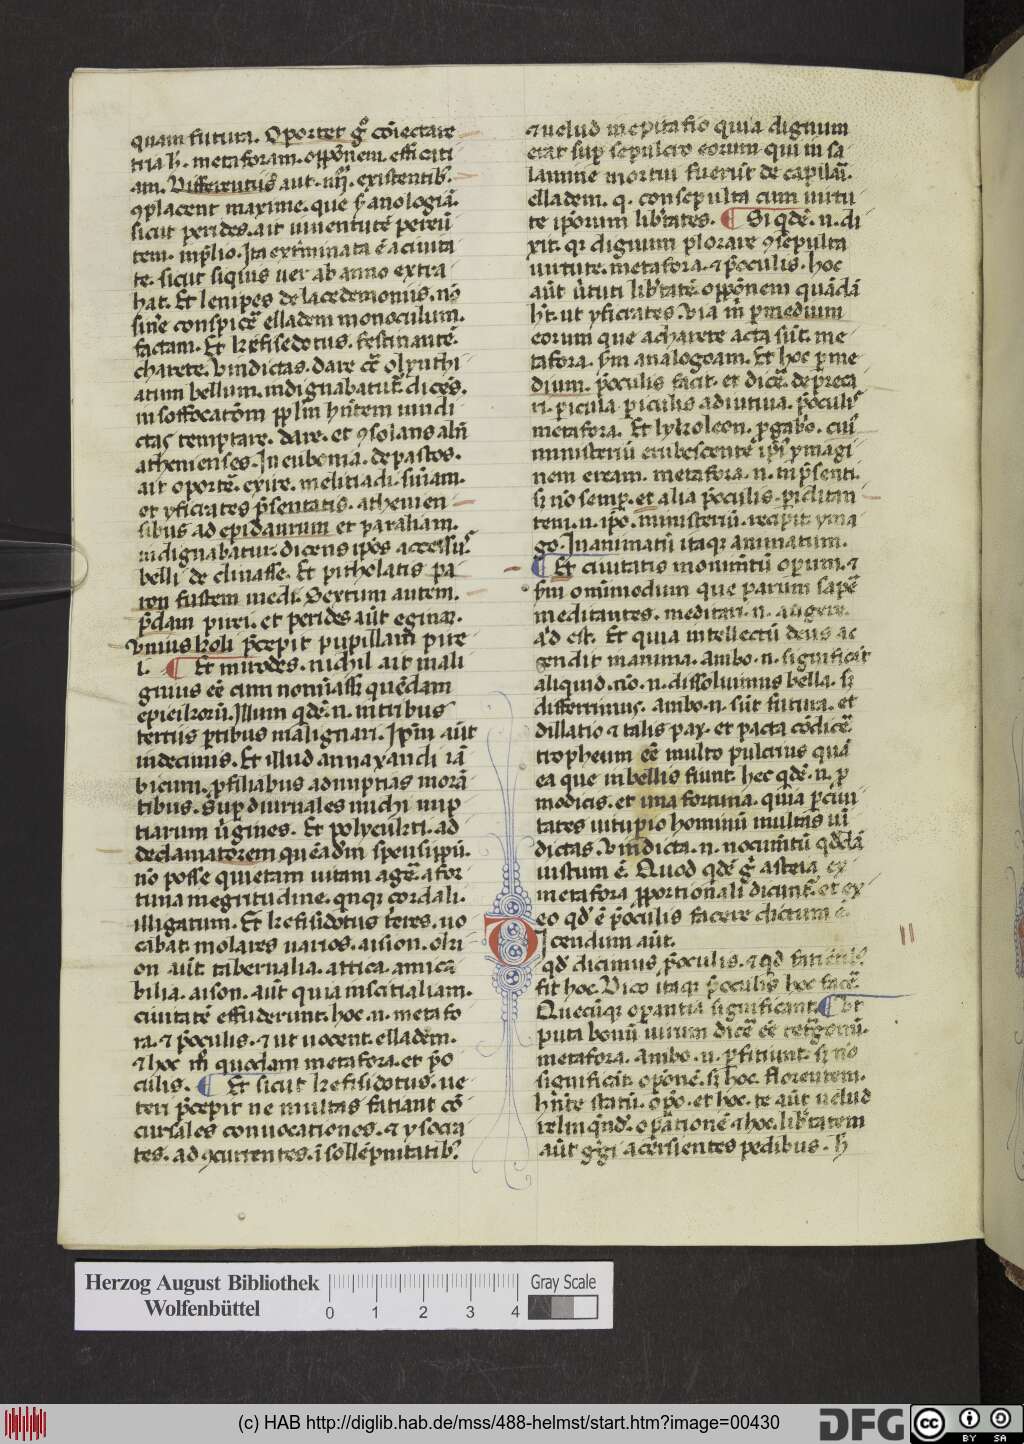 quam futura. Oportet gͦ cōiectare
tria h̄. metaforam. oppōnem. efficiti
am. Differentiis aūt. iiijͦʳ. existentibꝰ.
ꝯplacent maxime. que ẜ analogiā.
sicut perides. ait iuuentutē pereū
tem. in p̄lio. Ita exterminata ē a ciuita
te. sicut siquis uer ab anno extra
hat. Et lenipes de lacedemoniis. nō
sinē conspicē elladem monoculum.
factam. Et kefisedotus. festinantē.
charete. vindictas. dare cc̄ olynthi
acum bellum. indignabatur̄. dicēs.
in soffocatōm pp̄lm hn̄tem uindi
ctas temptare. dare. et ꝯsolans aln̄
athenienses. In euboniā. de pastos.
ait oportē. exire. meltiadi. sn̄iam.
et yficrates p̄sentatis. athenien
sibus ad epidaurum et paraliam.
indignabatur. dicens ip̄os accessū.
belli de clinasse. Et pitholatis pa
ron fustem medi. Sextum autem.
p̄dam pirei. et perides aūt eginaꝫ.
vnius koli p̄cepit pupillam pire
i. Et mirodes. nichil ait mali
gnius eē cum noīassꝫ quēdam
epieikoꝝ. Illum qdē. n. in tribus
tertiis ꝑtibus malignari. Ip̄m aūt
in decimis. Et illud annaxandi iā
bicum. ꝓ filiabus ad nuptias morā
tibus. Suꝑ diurnales michi nup
tiarum ūgines. Et polyeukti. ad
declamatorem quēdā in speusippū.
nō posse quietam uitam agē. a for
tuna in egritudine. qnqꝫ cordali.
illigatum. Et kefisidotus teres. uo
cabat. molares uarios. aision. okri
on aūt tabernalia. attica. amicā
bilia. aison. aūt quia in scitialiam.
ciuitatē effuderunt. hoc. n. meta fo
ra. ⁊ p̄oculis. ⁊ ut uocent. elladem.
⁊ hoc mͦ quodam metafora. et p̄o
culis. Et sicut kefisidotus. ue
teri p̄cepit ne multas faciant cō
cursales conuocationes. ⁊ ysocra
tes. ad ꝯcurrentes. ī sollēpnitatibꝰ.
⁊ uelud in epitafio quia dignum
erat suꝑ sepulcro eorum qui in sa
lamine mortui fuerūt de capillari.
elladem. q. consepulta cum uirtu
te ip̄orum libertates. Si qdē. n. di
xit. qꝫ dignum plorare ꝯsepulta
uirtute. metafora. ⁊ p̄oculis. hoc
aūt ūtuti libtatē. oppōnem quādā
ht̄. ut yficrates. via m̄ ꝑ medium
eorum que a charete acta sūt. me
tafora. ẜm analogoam. Et hoc ꝑ me
dium. p̄oculis facit. et dicē. depreca
ri. pericula. ꝑiculis adiutiua. p̄oculis.
metafora. Et lykoleon. ꝓ gabo. cui
ministeriū erubescentē ip̄i ymagi
nem eream. metafora. n. in p̄senti.
sꝫ nō semꝑ. et alia p̄oculis. ꝑiclitan
tem. n. ip̄o. ministeriū. recipit yma
go. Inanimatū itaqꝫ animatum.
Et ciuitatis monimētū oꝑum. ⁊
ẜm omīmodum que parum sapē
meditantes. meditari. n. augere.
ad est. Et quia intellectū deus ac
cendit in anima. ambo. n. significāt
aliquid. nō. n. dissoluimus bella. sꝫ
differrimus. ambo. n. sūt futura. et
dillatio ⁊ talis pax. et pacta cōdicē
tropheum eē multo pulcrius quā
ea que in bellis fiunt. hec qdē. n. ꝓ
modicis. et una fortuna. quia ꝑ ciui
tates uituꝑio hominū multas uī
dictas. vindicta. n. nocumētū qddā
iustum ē. Quod qdē gͦ asteia ex
metafora ꝓportionali dicunt̄. et ex
eo qd ē p̄oculis facere dictum ē.
Dicendum aūt.
qd dicimus p̄oculis. ⁊ qd faciētibꝰ
fit hoc. Dico itaqꝫ p̄oculis hoc facē.
Quecūqꝫ oꝑantia significant. Vt
puta bonū uirum dicē eē tetͣgonū.
metafora. ambo. n. ꝑfitiunt. sꝫ nō
significāt. oꝑōnē. sꝫ hoc. florentem.
hn̄te statū. oꝑō. et hoc. te aūt uelud
relinqͥndo. oꝑationē ⁊ hoc. libtatem
aūt gͥgi acersientes pedibus. h̄
Herzog August Bibliothek
Wolfenbüttel
0 1 2 3 4
Gray Scale
(c) HAB http://diglib.hab.de/mss/488-helmst/start.htm?image=00430
DFG
cc BY SA